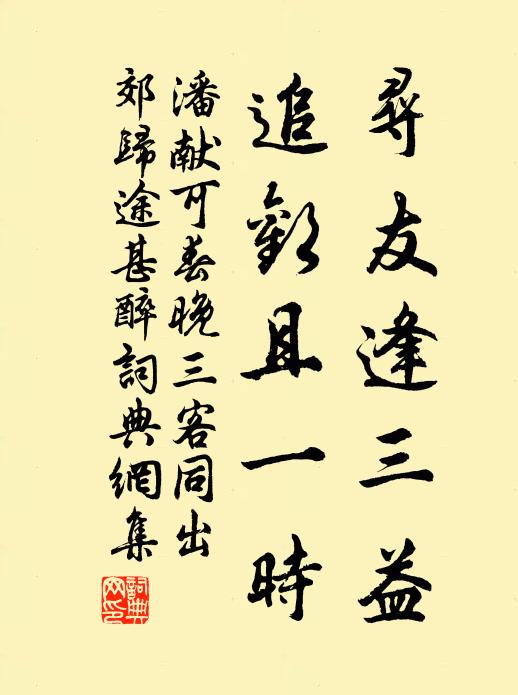 尋友逢三益
追歡且一時
潘献可春晚三客同出
郊歸途甚醉詞典網集
詞典網印